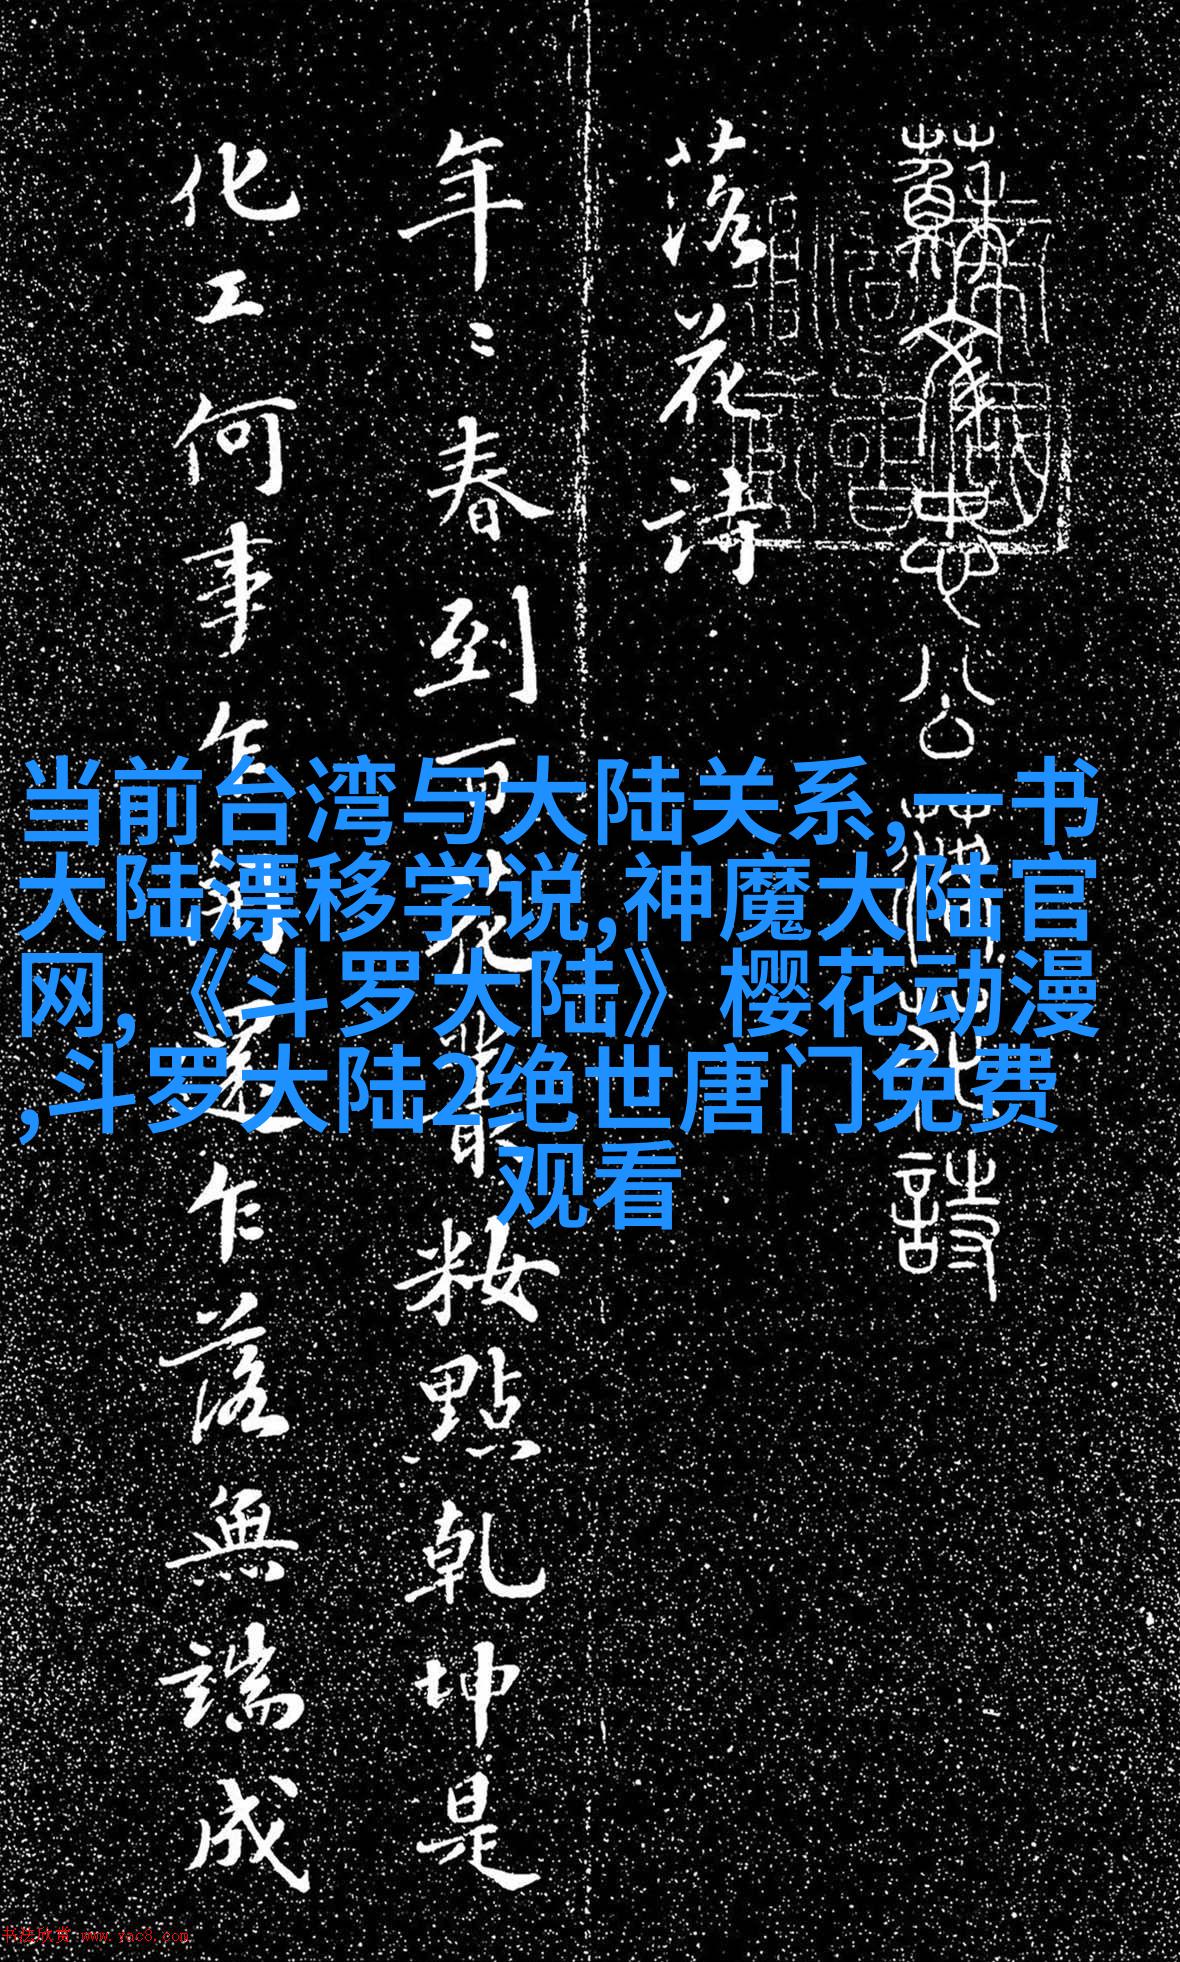 蘇文忠公落花詩
落花詩
年〻春到百花叢粧點乾坤是
化工何事乍還乍落無端成
当前台湾与大陆关系,一书
大陆漂移学说,神魔大陆官
网,《斗罗大陆》樱花动漫
,斗罗大陆2绝世唐门免费
观看
书法欣赏 www.yac8.com